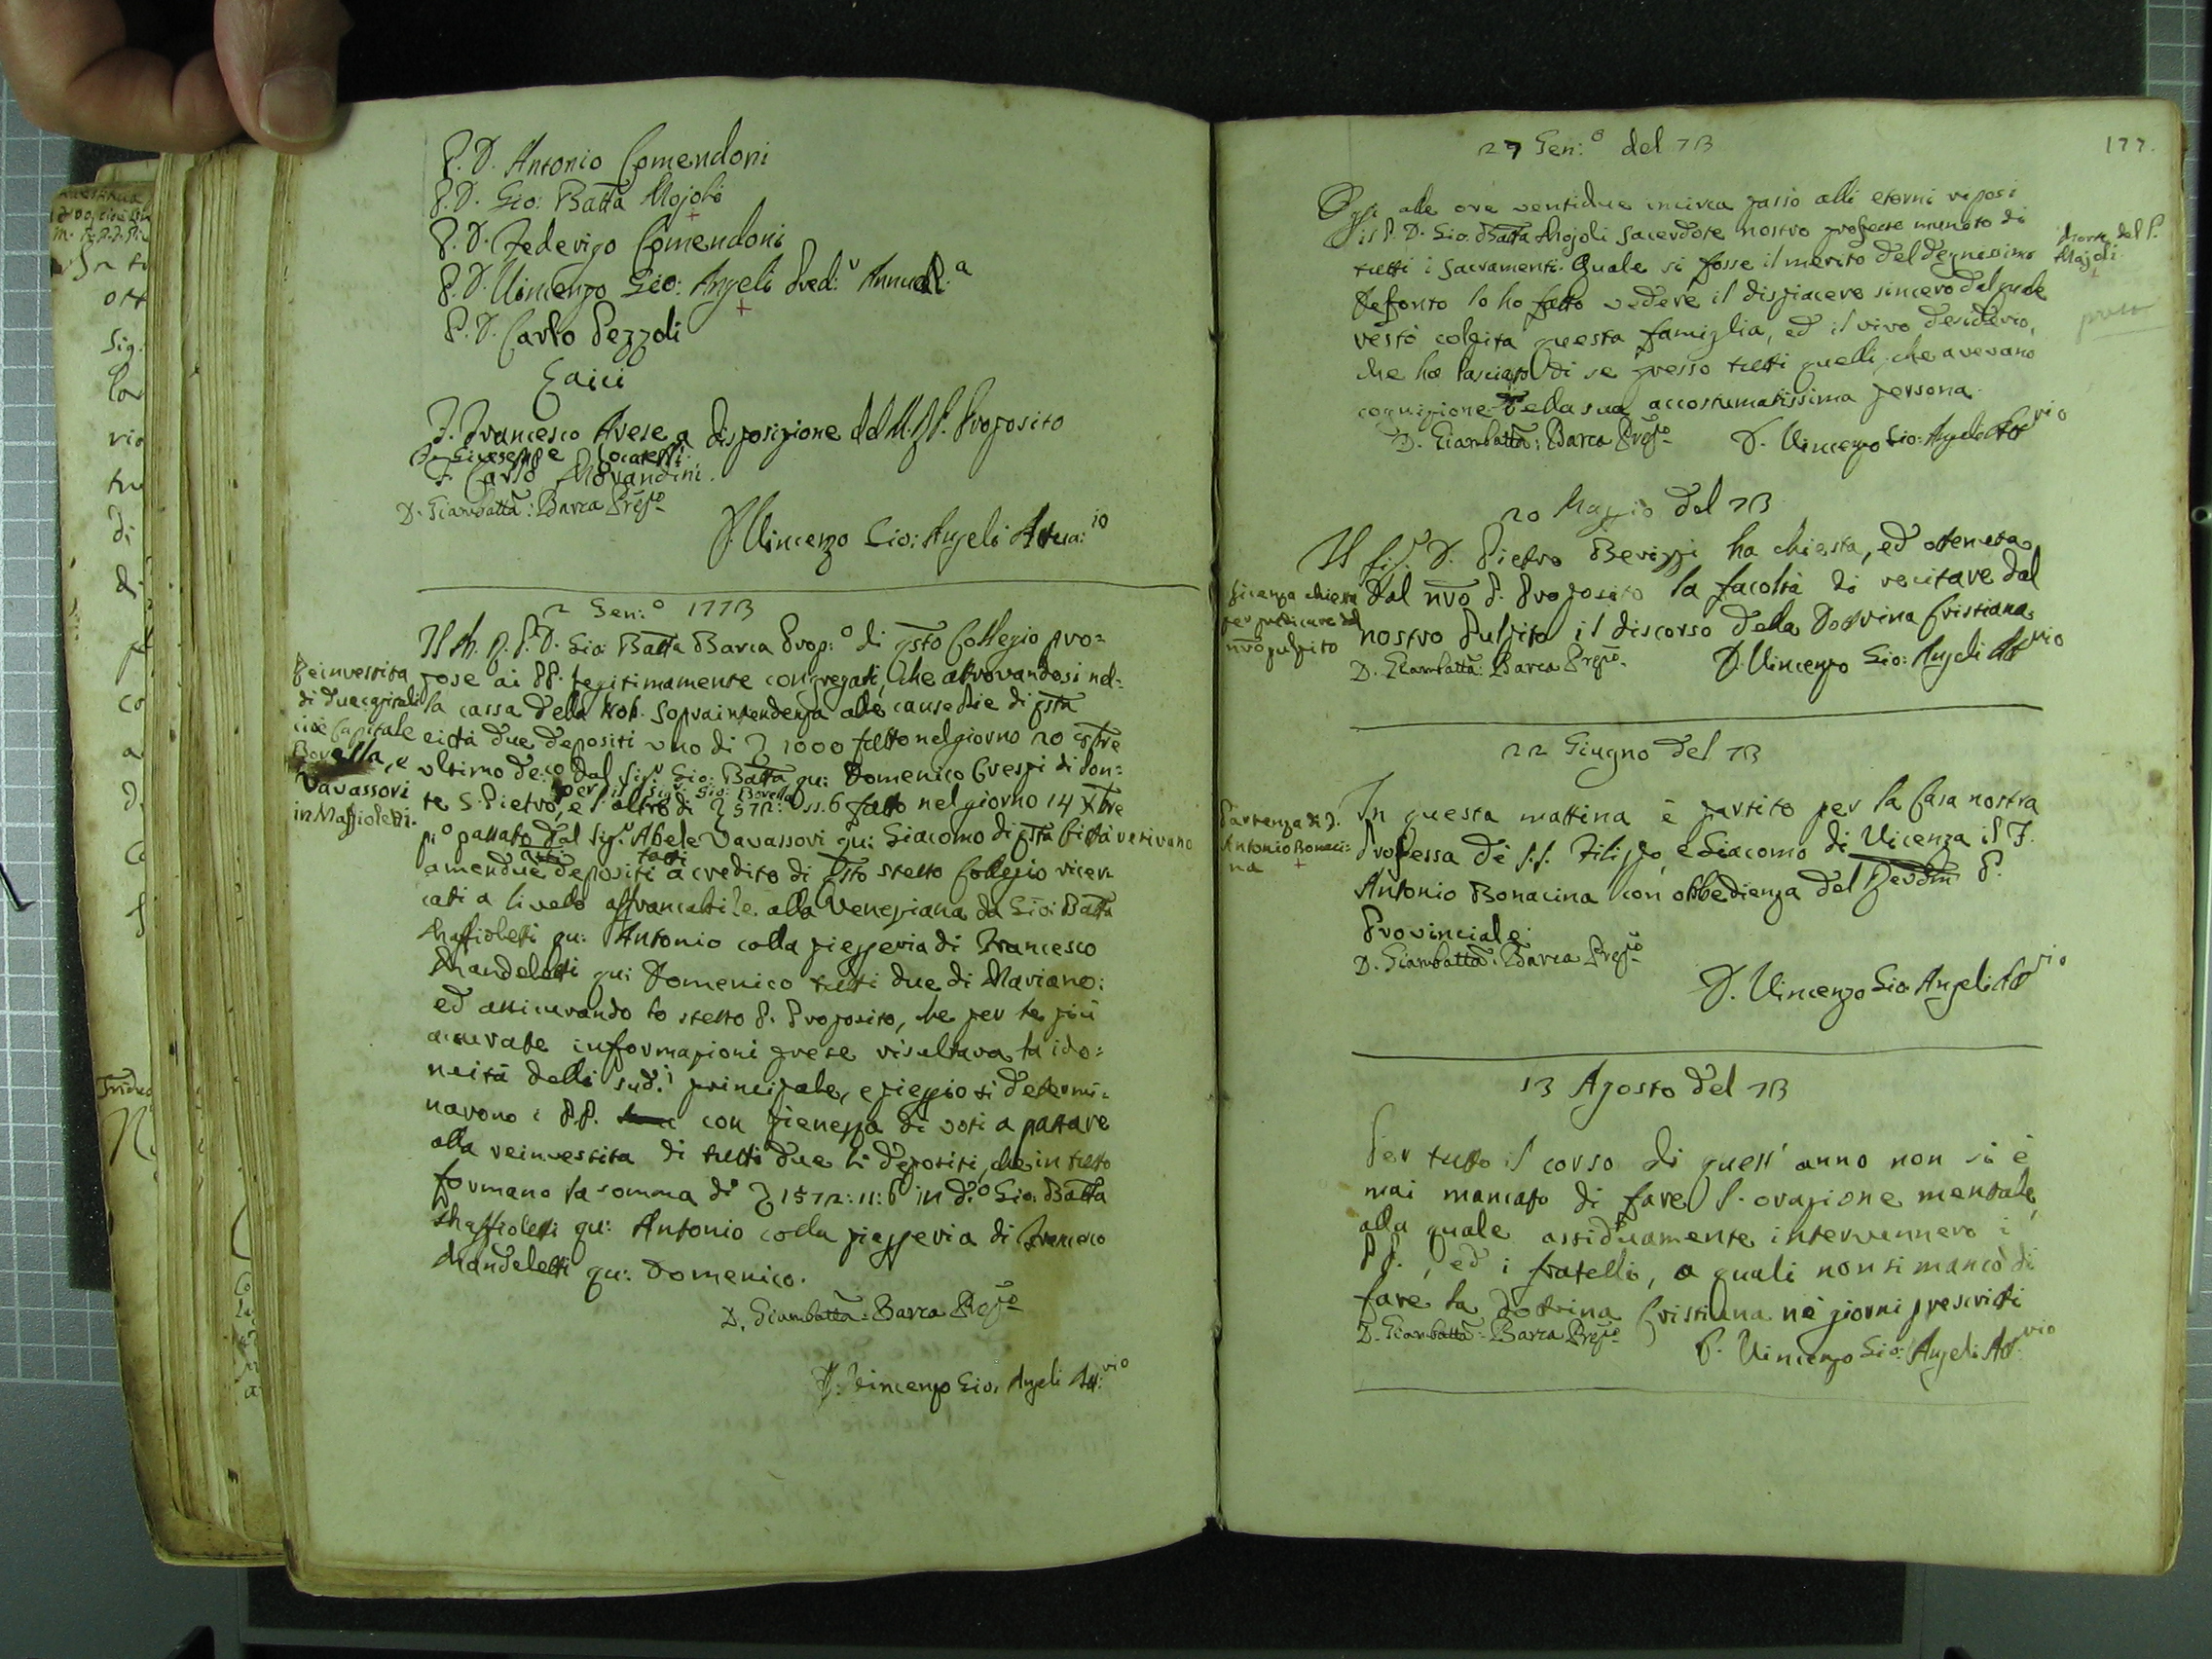 P. D. Antonio Comendoni
P. D. Gio: Batta Mojoli
P. D. Federigo Comendoni
P. D. Vincenzo Gio: Angeli Pred:r Annual:a
P. D. Carlo Pezzoli
Laici
F. Francesco Avese a disposizione del M. R. P. Proposito
F. Giuseseppe Locatelli
F. Carlo Morandini.
D. Giambatta: Barca Prep.to
P. Vincenzo Gio: Angeli Attua:io
2 Gen:o 1773
Il M. R. P. D. Gio Batta Barca Prop:o di qsto Collegio pro=
pose ai PP. legitimamente congregati, che attrovandosi nel=
la cassa della Nob. Sopraintendenza alle cause Pie di qsta
città due depositi uno di 1000 fatto nel giorno 20
ultimo de:co dal Sig.r Gio: Batta qu: Domenico Crespi di Pon=
per il Sig.r Gio: Bovella
te S. Pietro, e l'altro di 572: 11.6 fatto nel giorno 14 Xbre
p:o passato dal Sig.r Abele Vavassori qu: Giacomo di qsta Città venivano
atti fatti
amendue depositi a credito di qsto stesso Collegio ricer
cati a livello affrancabile alla Veneziana da Gio: Batta
Maffioletti qu: Antonio colla pieggeria di Francesco
Mandeletti qu: Domenico tutti due di Mariano:
ed assicurando lo stesso P. Proposito, che per le più
accurate informazioni prese risultava la ido=
neità delli sud.i principale, e pieggio si determi=
narono i PP. con pienezza di voti a passare
alla reinvestita di tutti due li depositi, che in tutto
formano la somma di 1572: 11: 6 in d:o Gio: Batta
Maffioletti qu: Antonio colla pieggeria di Francesco
Mandeletti qu: Domenico.
D. Giambatta: Barca Prep.to
P. Vincenzo Gio: Angeli Att:rio
Reinvestita
di due capitali
cioè Capitale
Bovella, e
Vavassori
in Maffioletti.
177.
27 Gen:o del 73
Oggi alle ore ventidue incirca passò alli eterni riposi
il P. D. Gio: Batta Mojoli Sacerdote nostro professo munito di
tutti i Sacramenti. Quale si fosse il merito del degnissimo
Defonto lo ha fatto vedere il dispiacere sincero dal quale
restò colpita questa famiglia, ed il vivo desiderio,
che ha lasciato di se presso tutti quelli, che avevano
cognizione della sua accostumatissima persona.
D. Giambatta: Barca Prep.to P. Vincenzo Gio: Angeli Att.rio
Morte del P.
Mojoli
20 Maggio del 73
Il Sig.r D. Pietro Berizzi ha chiesta, ed ottenuta
dal nro P. Proposito la facoltà di recitare dal
nostro Pulpito il discorso della Dottrina Cristiana.
D. Giambatta: Barca Prep.to P. Vincenzo Gio: Angeli Att.rio
Licenza chiesta
per predicare dal
nro pulpito
22 Giugno del 73
In questa mattina è partito per la Casa nostra
Professa de' S.S. Filippo, e Giacomo di Vicenza il F.
Antonio Bonacina con obbedienza del Revdm P.
Provinciale.
D. Giambatta: Barca Prep.to
P. Vincenzo Gio Angeli Att.rio
Partenza di F.
Antonio Bonaci=
na
13 Agosto del 73
Per tutto il corso di quest' anno non si è
mai mancato di fare l'orazione mentale,
alla quale assiduamente intervennero i
PP., ed i fratelli, a quali non si mancò di
fare la Dottrina Cristiana ne' giorni prescritti
D. Giambatta: Barca Prep.to P. Vincenzo Gio: Angeli Att.rio